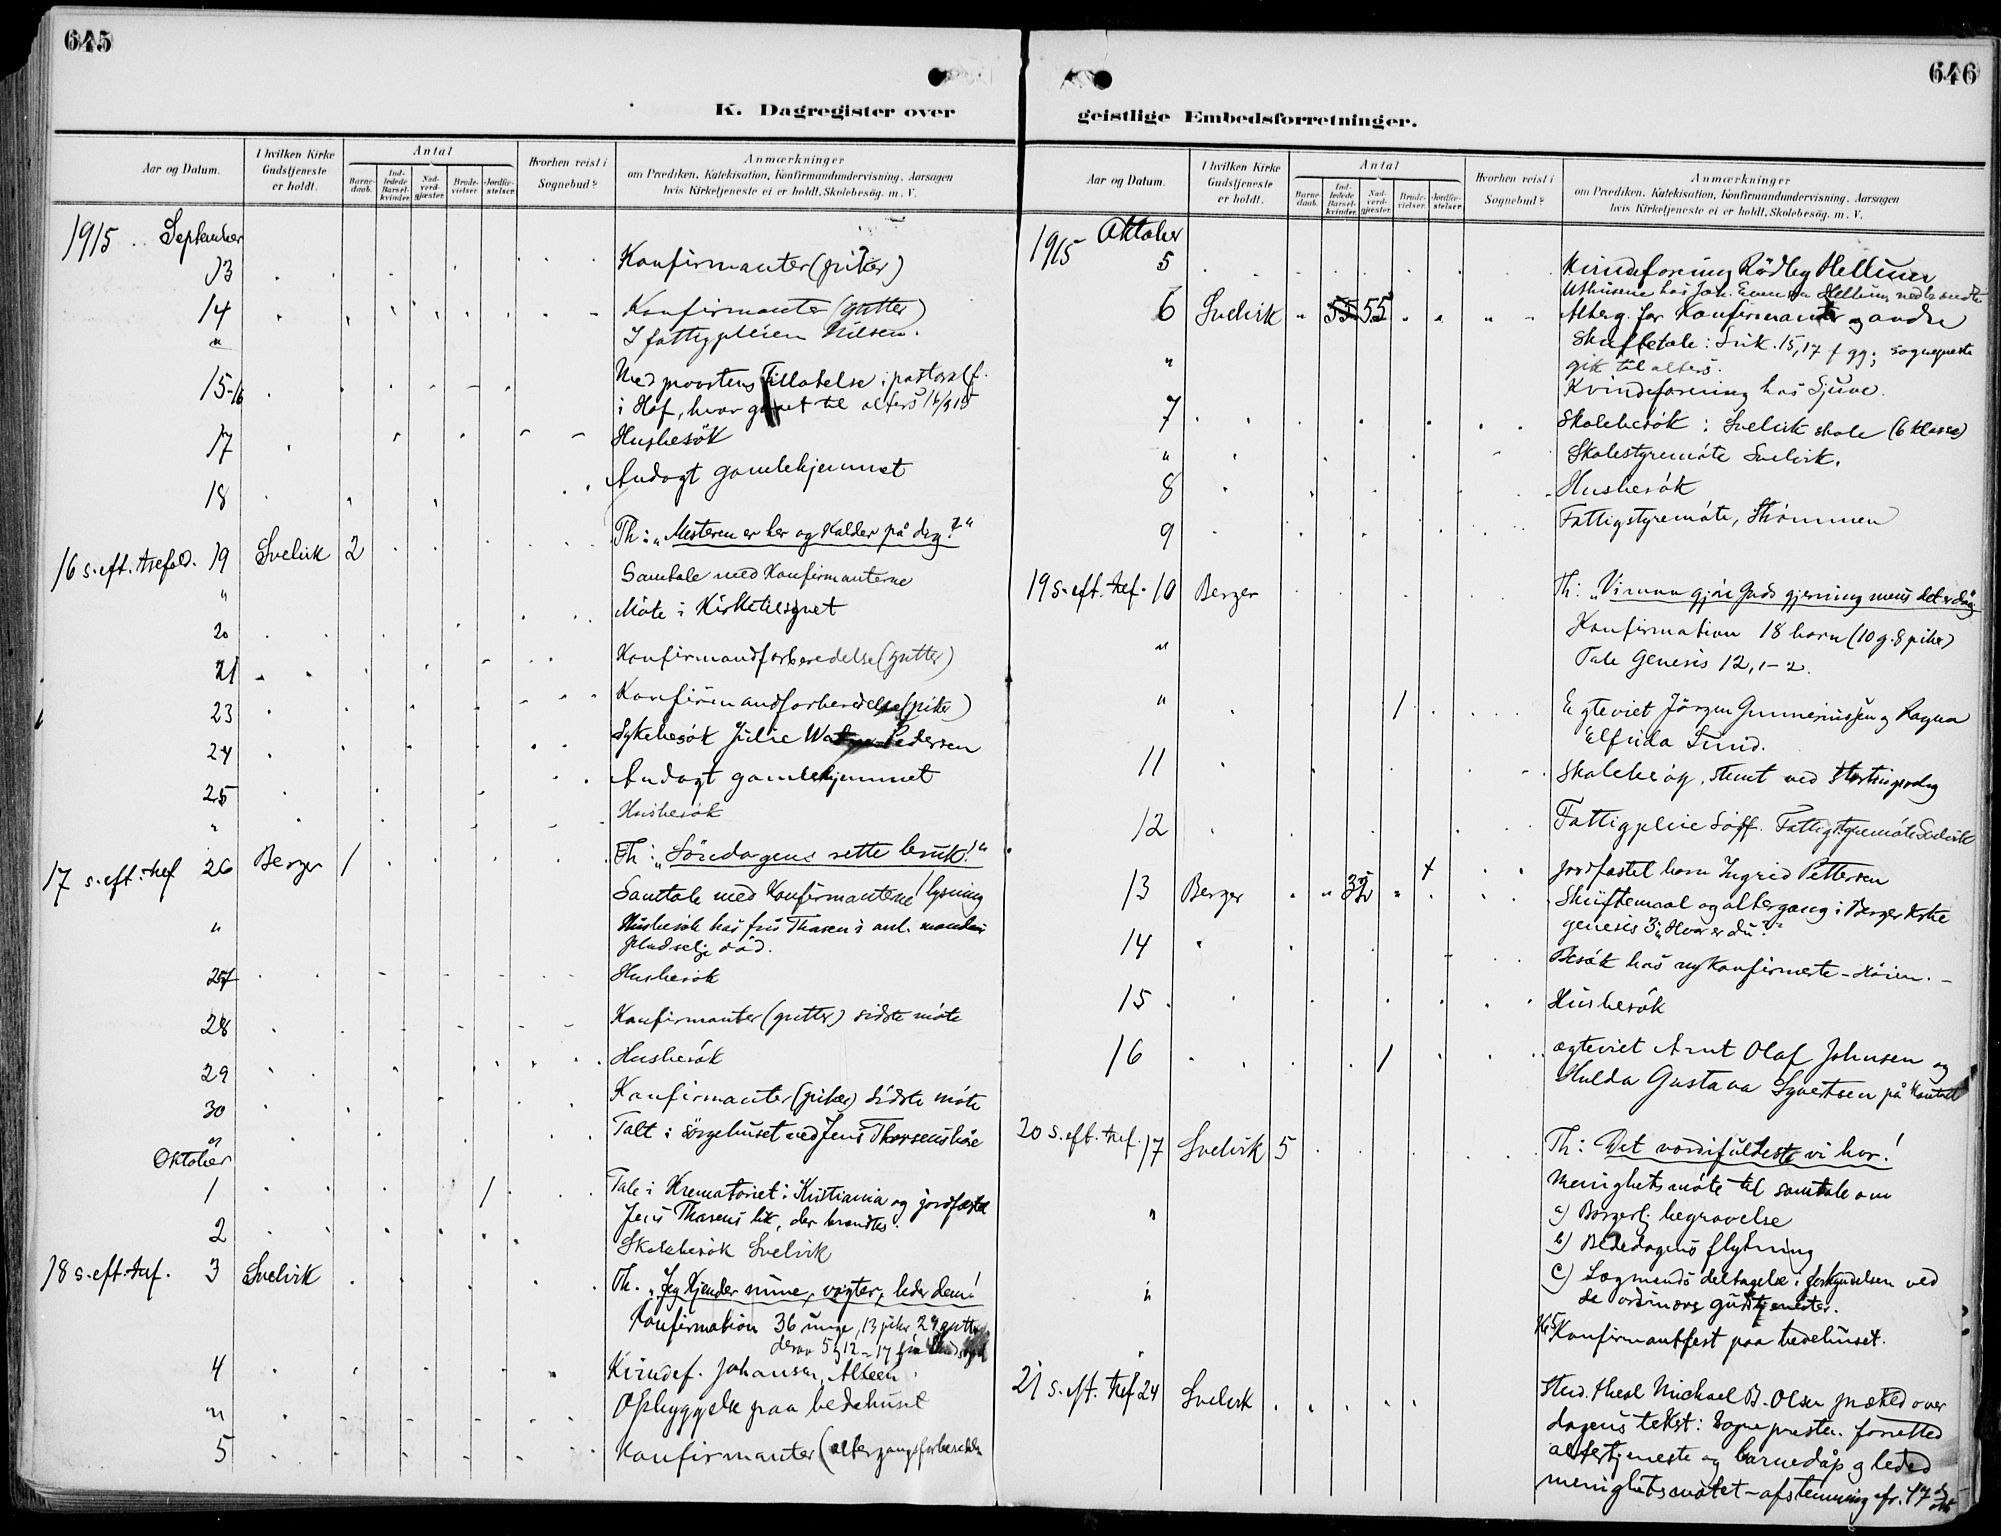 645
K. Dagregister over
Aar og Datum.
I hvilken Kirke Gudstjeneste er holdt.
Antal
Barne-daab.
Ind-ledede Barsel-kvinder.
Nad-verd-gjæster.
Brude-vielser.
Jordfæ-stelser.
Hvorhen reist i Sognebud?
Anmærkninger
om Prædiken, Katekisation, Konfirmandundervisning, Aarsagen
hvis Kirketjeneste ei er holdt, Skolebesøg. m. V.
1915 September
13 Konfirmanter (piker)
14 Konfirmanter (gutter)
" I fattigpleien Nilsen.
15-16 Med provstens Tillatelse i pastoralf.
i Hof, hvor gaaet til alters 16/9 15
17 Husbesök
18 Andagt gamlehjemmet
16 s. eft. trefold. 19 Svelvik 2 Th: "Mesteren er her og kalder på dig!"
" Samtale med Konfirmanterne
20 Möte i Kirketilsynet
21 Konfirmandforberedelse (gutter)
23 Konfirmandforberedelse (piker)
24 Sykebesök Julie Pedersen
25 Andagt gamlehjemmet
" Husbesök
17 s. eft. tref 26 Berger 1 Th: "Söndagens rette bruk!"
Samtale med Konfirmanterne / lysning
" Husbesök hos fru Thorsen i anl. mandens
pludselig död.
27 Husbesök
28 Konfirmanter (gutter) sidste möte
29 Husbesök
30 Konfirmanter (piker) sidste möte
" Talt i sörgehuset ved Jens Thorsens båre
Oktober
1 1 Tale i Krematoriet i Kristiania og jordfæstet
Jens Thorsens lik, der brændtes.
2 Skolebesök Svelvik
18 s. eft. tref. 3 Svelvik Th. "Jeg kjender mine, vogter, leder dem!
Konfirmation 36 unge, 13 piker 24 gutter
derav 5 12 - 17 fra
4 Kvindef. Johansen, Alleen.
" Opbyggelse paa bedehuset
5 Konfirmanter (altergangsforberedelse
646
geistlige Embedsforretninger.
Aar og Datum.
I hvilken Kirke Gudstjeneste er holdt.
Antal
Barne-daab.
Ind-ledede Barsel-kvinder.
Nad-verd-gjæster.
Brude-vielser.
Jordfæ-stelser.
Hvorhen reist i Sognebud?
Anmærkninger
om Prædiken, Katekisation, Konfirmandundervisning, Aarsagen
hvis Kirketjeneste ei er holdt, Skolebesög. m. V.
1915 Oktober
5 Kvindeforening Rödbyg Hellum
Uthusene hos Joh. Evensen Hellum nedbrændte
6 Svelvik 55 55 Alterg. for Konfirmanter og andre
Skriftetale: Luk. 15, 17 f gg; sognepresten
gik til alters.
" Kvindeforening hos Sjuve.
7 Skolebesök i Svelvik skole (6 klasse)
" Skolestyremöte Svelvik.
8 Husbesök
9 Fattigstyremöte, Strömmen
19 s. eft. tref. 10 Berger Th: "Vi maa gjöre Guds gjerning mens det er dag"
" Konfirmation 18 barn (10 g. 8 piker)
Tale Genesis 12, 1-2.
" 1 Egteviet Jörgen Gunneriussen og Ragna
Elfrida Lund.
11 Skolebesög, stemt ved stortingsvalg
12 Fattigpleie Fattigstyremöte Svelvik
13 Berger 32 + Jordfæstet barn Ingrid Pettersen
Skriftemaal og altergang i Berger kirke
genesis 3 "Hvor er du?"
14 Besök hos nykonfirmerte - Höien. -
15 Husbesök
16 1 ægteviet Arnt Olaf Johnsen og
Hulda Gustava Syvertsen på Kontoret
20 s. eft. tref. 17 Svelvik 5 Th: Det værdifuldeste vi har!
" Menighetsmöte til samtale om
a) Borgerlig begravelse
b) Bededagens flytning
c) Lægmænds deltagelse i forkyndelsen ved
" de ordinære gudstjenester.
Kl 5 Konfirmantfest paa bedehuset.
21 s. eft. tref 24 Svelvik Stud. theol Michael B. Olsen præked over
dagens tekst: Sognepresten forretted
altertjeneste og barnedåp og leded
menighetsmötet - afstemning efr. 17 okt